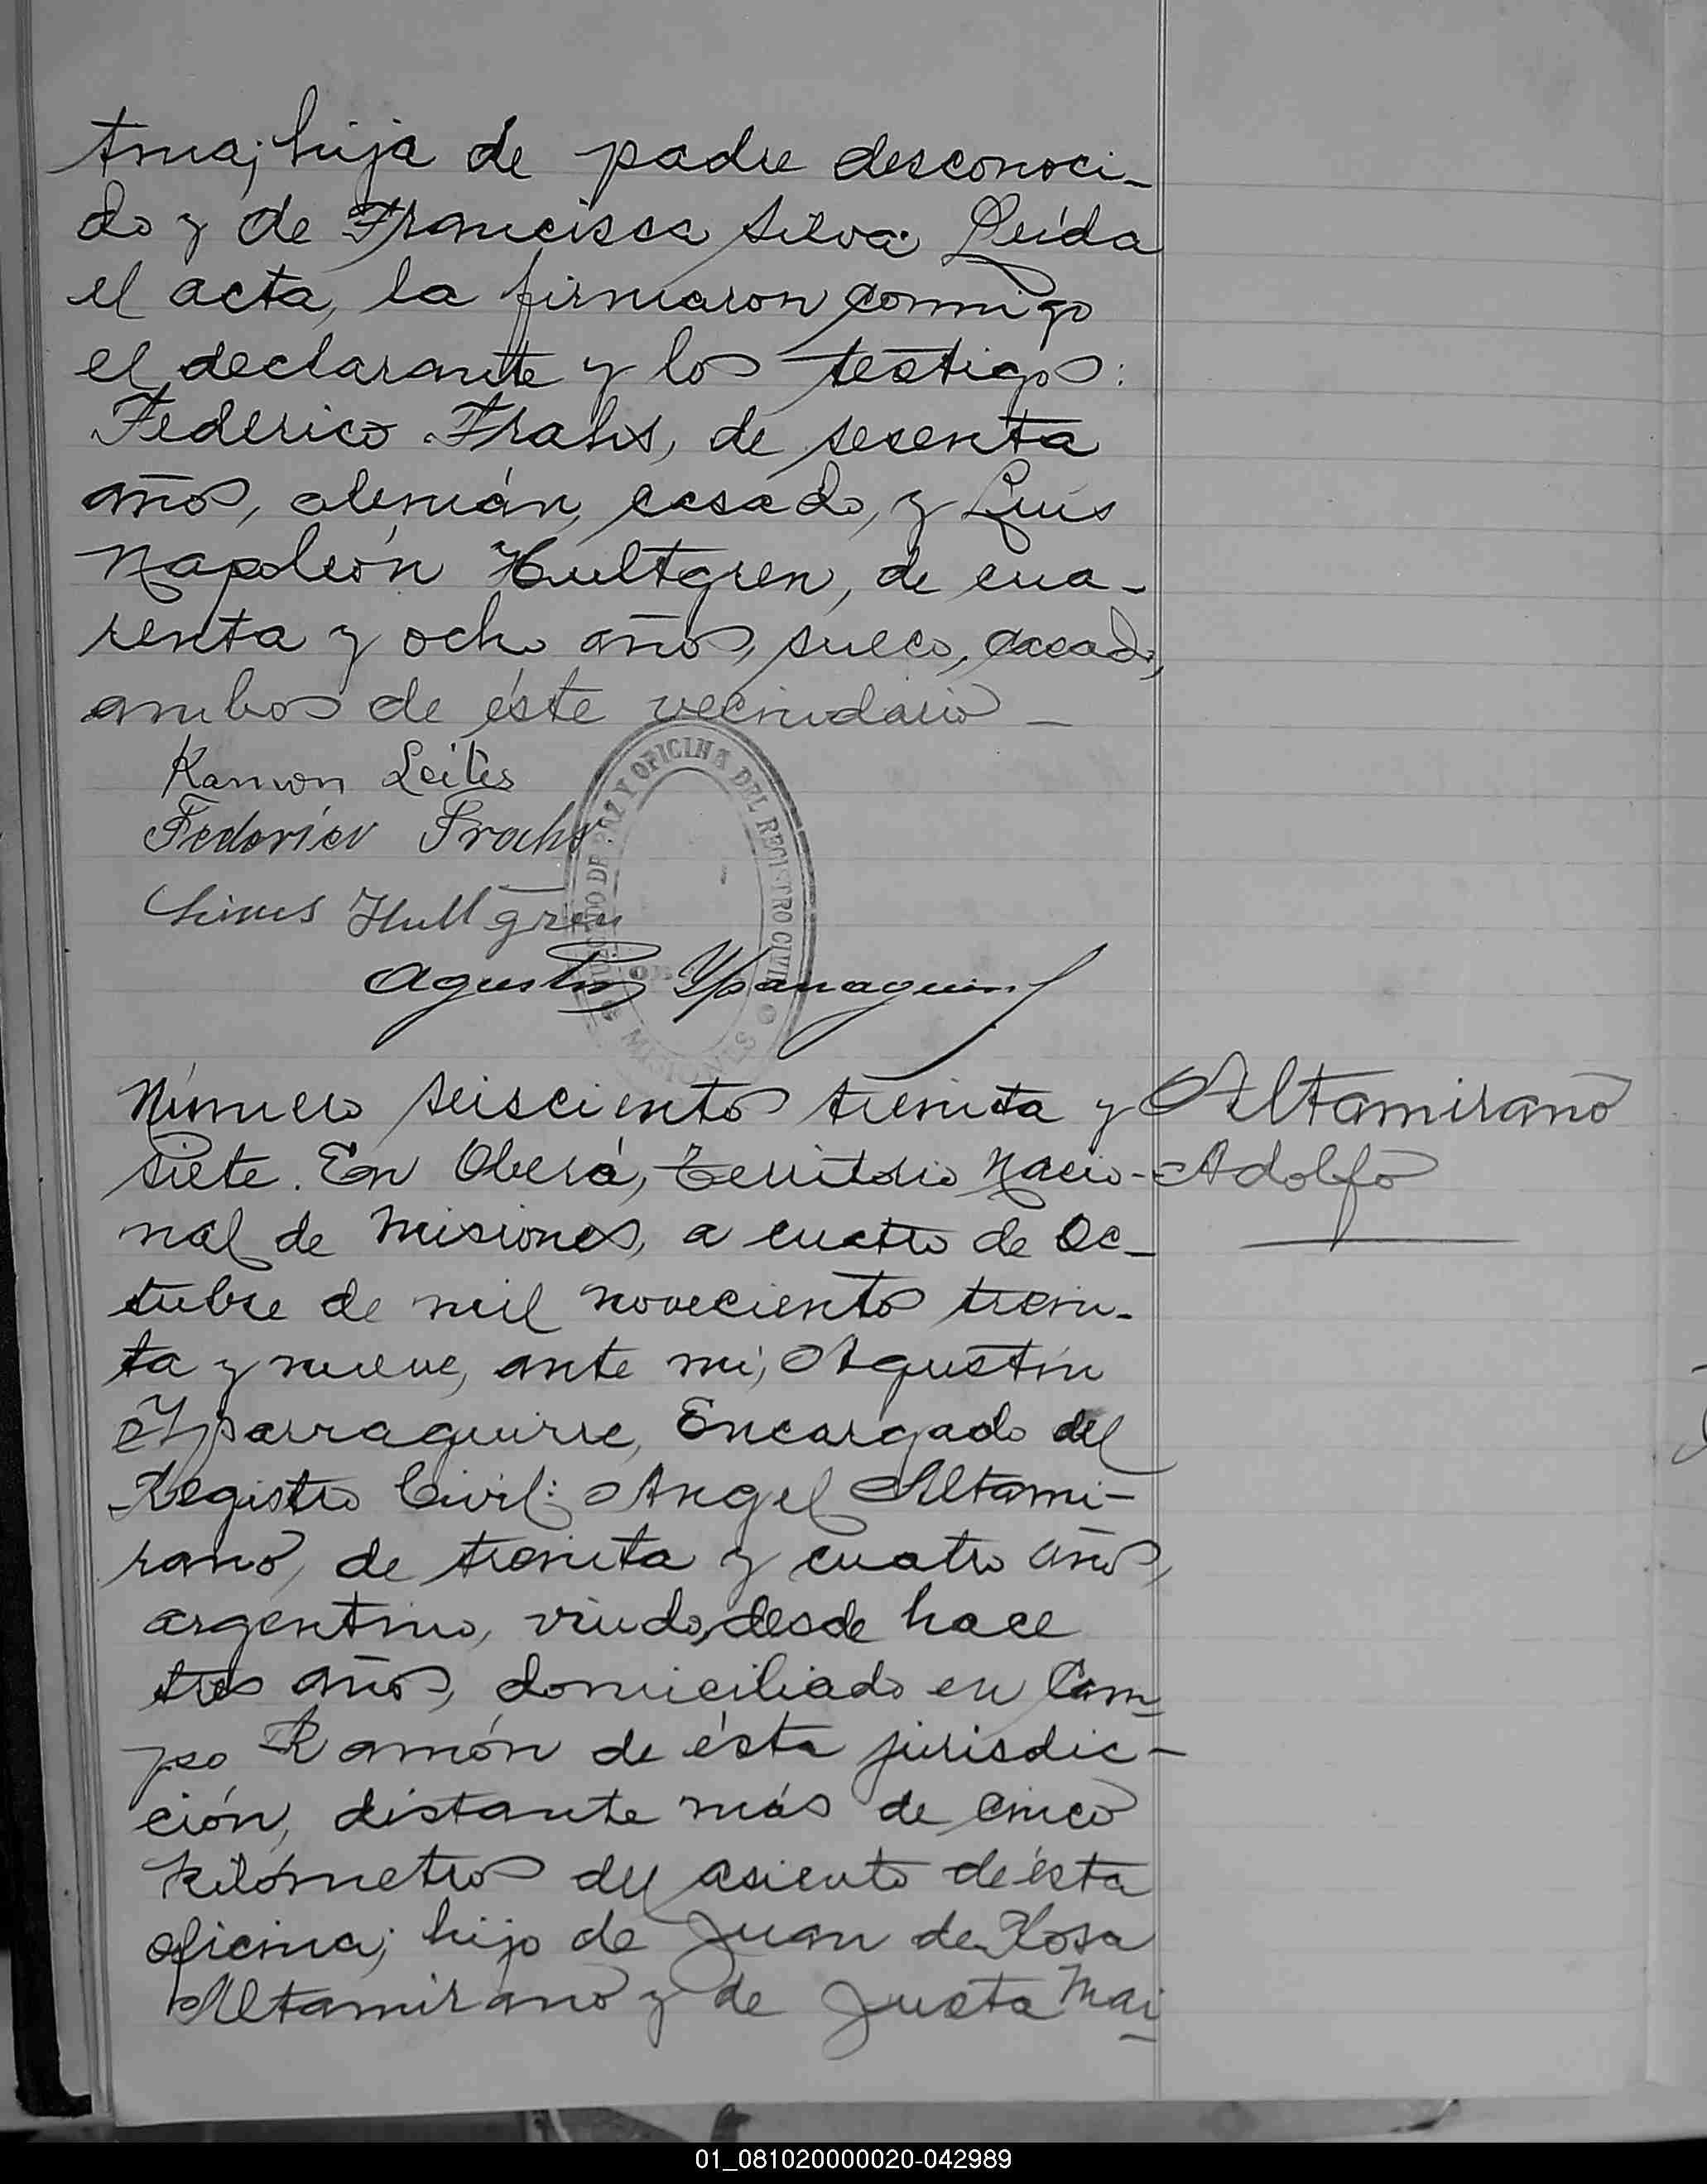 tina; hija de padre desconoci-
do y de Francisca Silva. Leída
el acta, la firmaron conmigo
el declarante y los testigos:
Federico Frahs, de sesenta
años, alemán, casado, y Luis
Napoleón Hultgren, de cua-
renta y ocho años, sueco, casado,
ambos de éste vecindario —
Ramon Leites
Federico Frahs
Hultgren
Agustin Yparraguirre
JUZGADO DE PAZ Y OFICINA DEL REGISTRO CIVIL
MISIONES
Número seiscientos treinta y
siete. En Oberá, Territorio Nacio-
nal de Misiones, a cuatro de Oc-
tubre de mil novecientos trein-
ta y nueve, ante mi, Agustín
Yparraguirre, Encargado del
Registro Civil: Angel Altami-
rano, de treinta y cuatro años,
argentino, viudo, desde hace
tres años, domiciliado en Cam-
po Ramón de ésta jurisdic-
ción, distante más de cinco
kilómetros del asiento de ésta
oficina; hijo de Juan de Rosa
Altamirano y de Justa Mai-
Altamirano
Adolfo
01_081020000020-042989